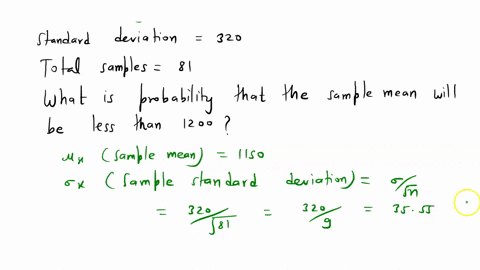 standard deviation = 320
Total samples = 81
What is probability that the sample mean will
be less than 1200 ?
μx (sample mean) = 1150
σx (sample standard deviation) = σ/√n
= 320/√81 = 320/9 = 35.55